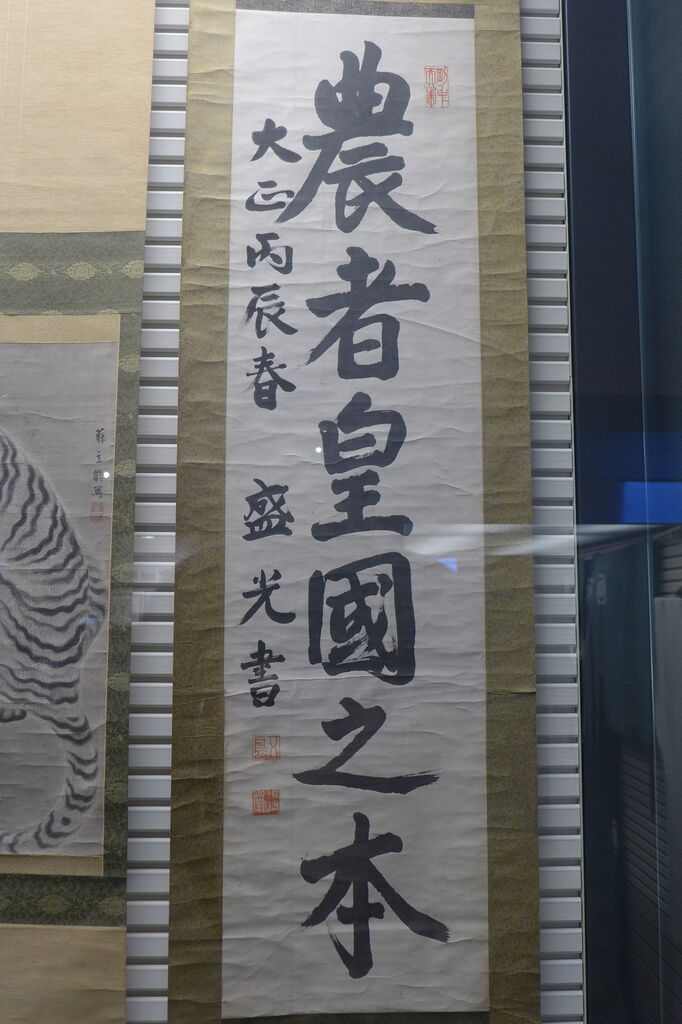 農者皇國之本
大正丙辰春 盛光書